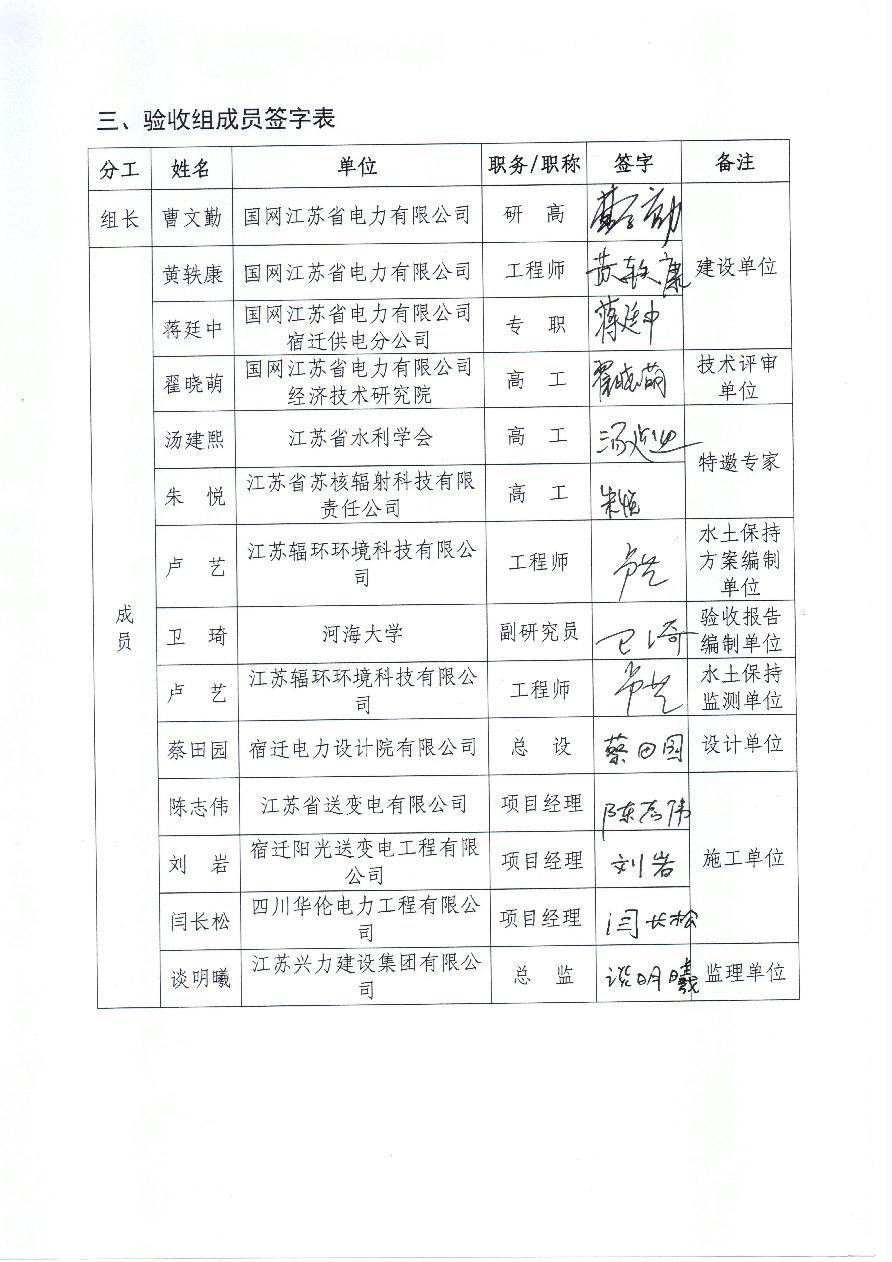 三、验收组成员签字表
分工 姓名 单位 职务/职称 签字 备注
组长 曹文勤 国网江苏省电力有限公司 研 高
黄轶康 国网江苏省电力有限公司 工程师 黄轶康 建设单位
蒋廷中 国网江苏省电力有限公司
宿迁供电分公司 专 职 蒋廷中
翟晓萌 国网江苏省电力有限公司
经济技术研究院 高 工 翟晓萌 技术评审
单位
汤建熙 江苏省水利学会 高 工
特邀专家
朱 悦 江苏省苏核辐射科技有限
责任公司 高 工 朱悦
卢 艺 江苏辐环环境科技有限公
司 工程师 卢艺 水土保持
方案编制
单位
成
员
卫 琦 河海大学 副研究员 卫琦 验收报告
编制单位
卢 艺 江苏辐环环境科技有限公
司 工程师 卢艺 水土保持
监测单位
蔡田园 宿迁电力设计院有限公司 总 设 蔡田园 设计单位
陈志伟 江苏省送变电有限公司 项目经理 陈志伟
刘 岩 宿迁阳光送变电工程有限
公司 项目经理 刘岩 施工单位
闫长松 四川华伦电力工程有限公
司 项目经理 闫长松
谈明曦 江苏兴力建设集团有限公
司 总 监 谈明曦 监理单位